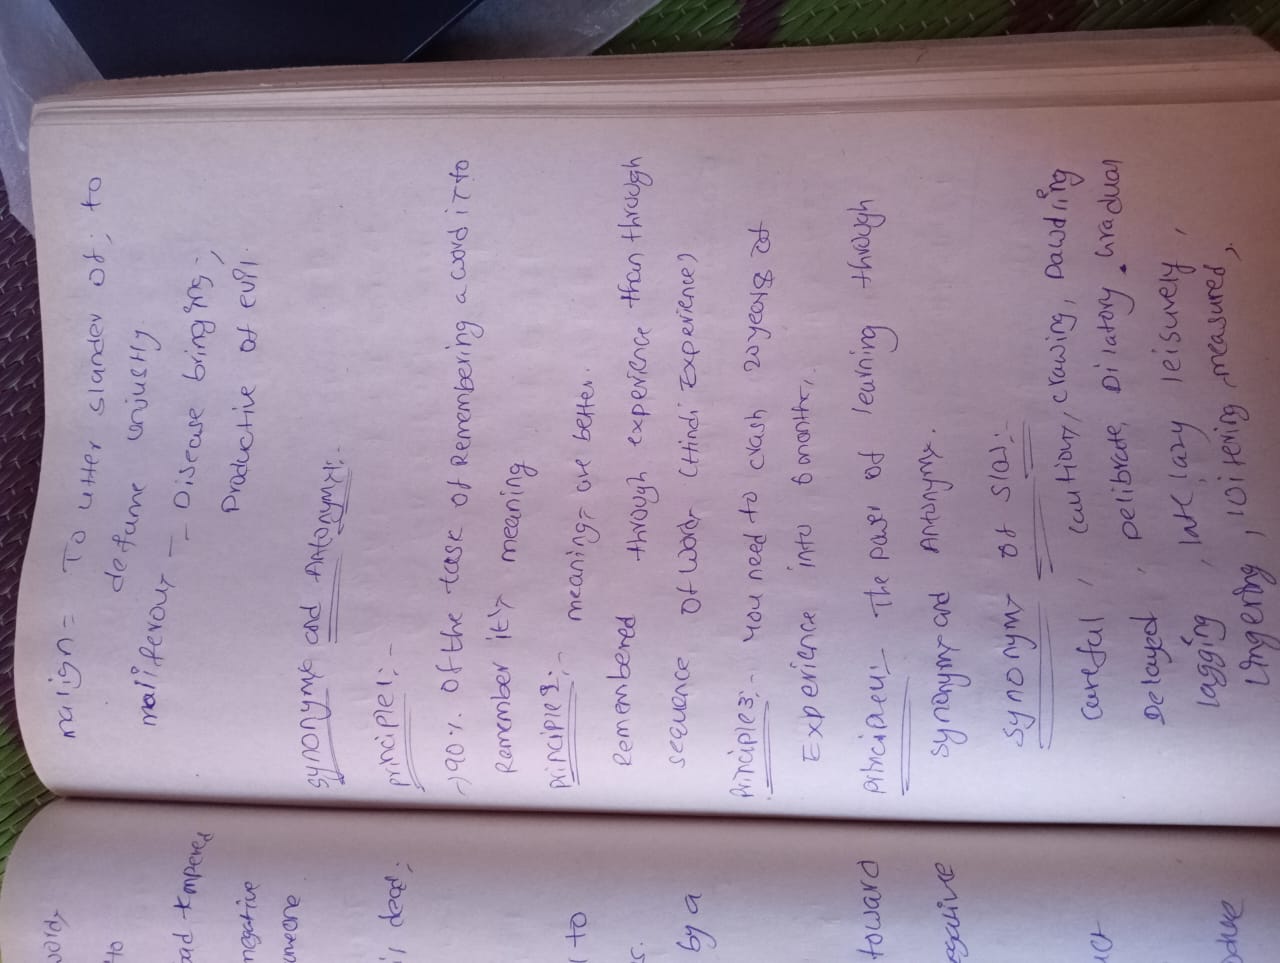 malign = To utter slander of; to
defame unjustly.
maliferous - Disease bringing;
Productive of evil.
Synonyms and Antonyms:-
principle1:-
→ 90% of the task of Remembering a word is to
Remember it's meaning
Principle2:- meanings are better.
Remembered through experience than through
sequence of words (Hindi Experience)
Principle3:- you need to crash 20 years of
Experience into 6 months.
The power of learning through
synonyms and Antonyms.
Synonyms of slow:-
Careful, Cautious, Crawing, Dawdling
Delayed, Delibrate, Dilatory. Gradual
lagging, late, lazy leisurely,
lingering, loitering, measured,
words
to
bad tempered
negative
someone
dead.
to
by a
toward